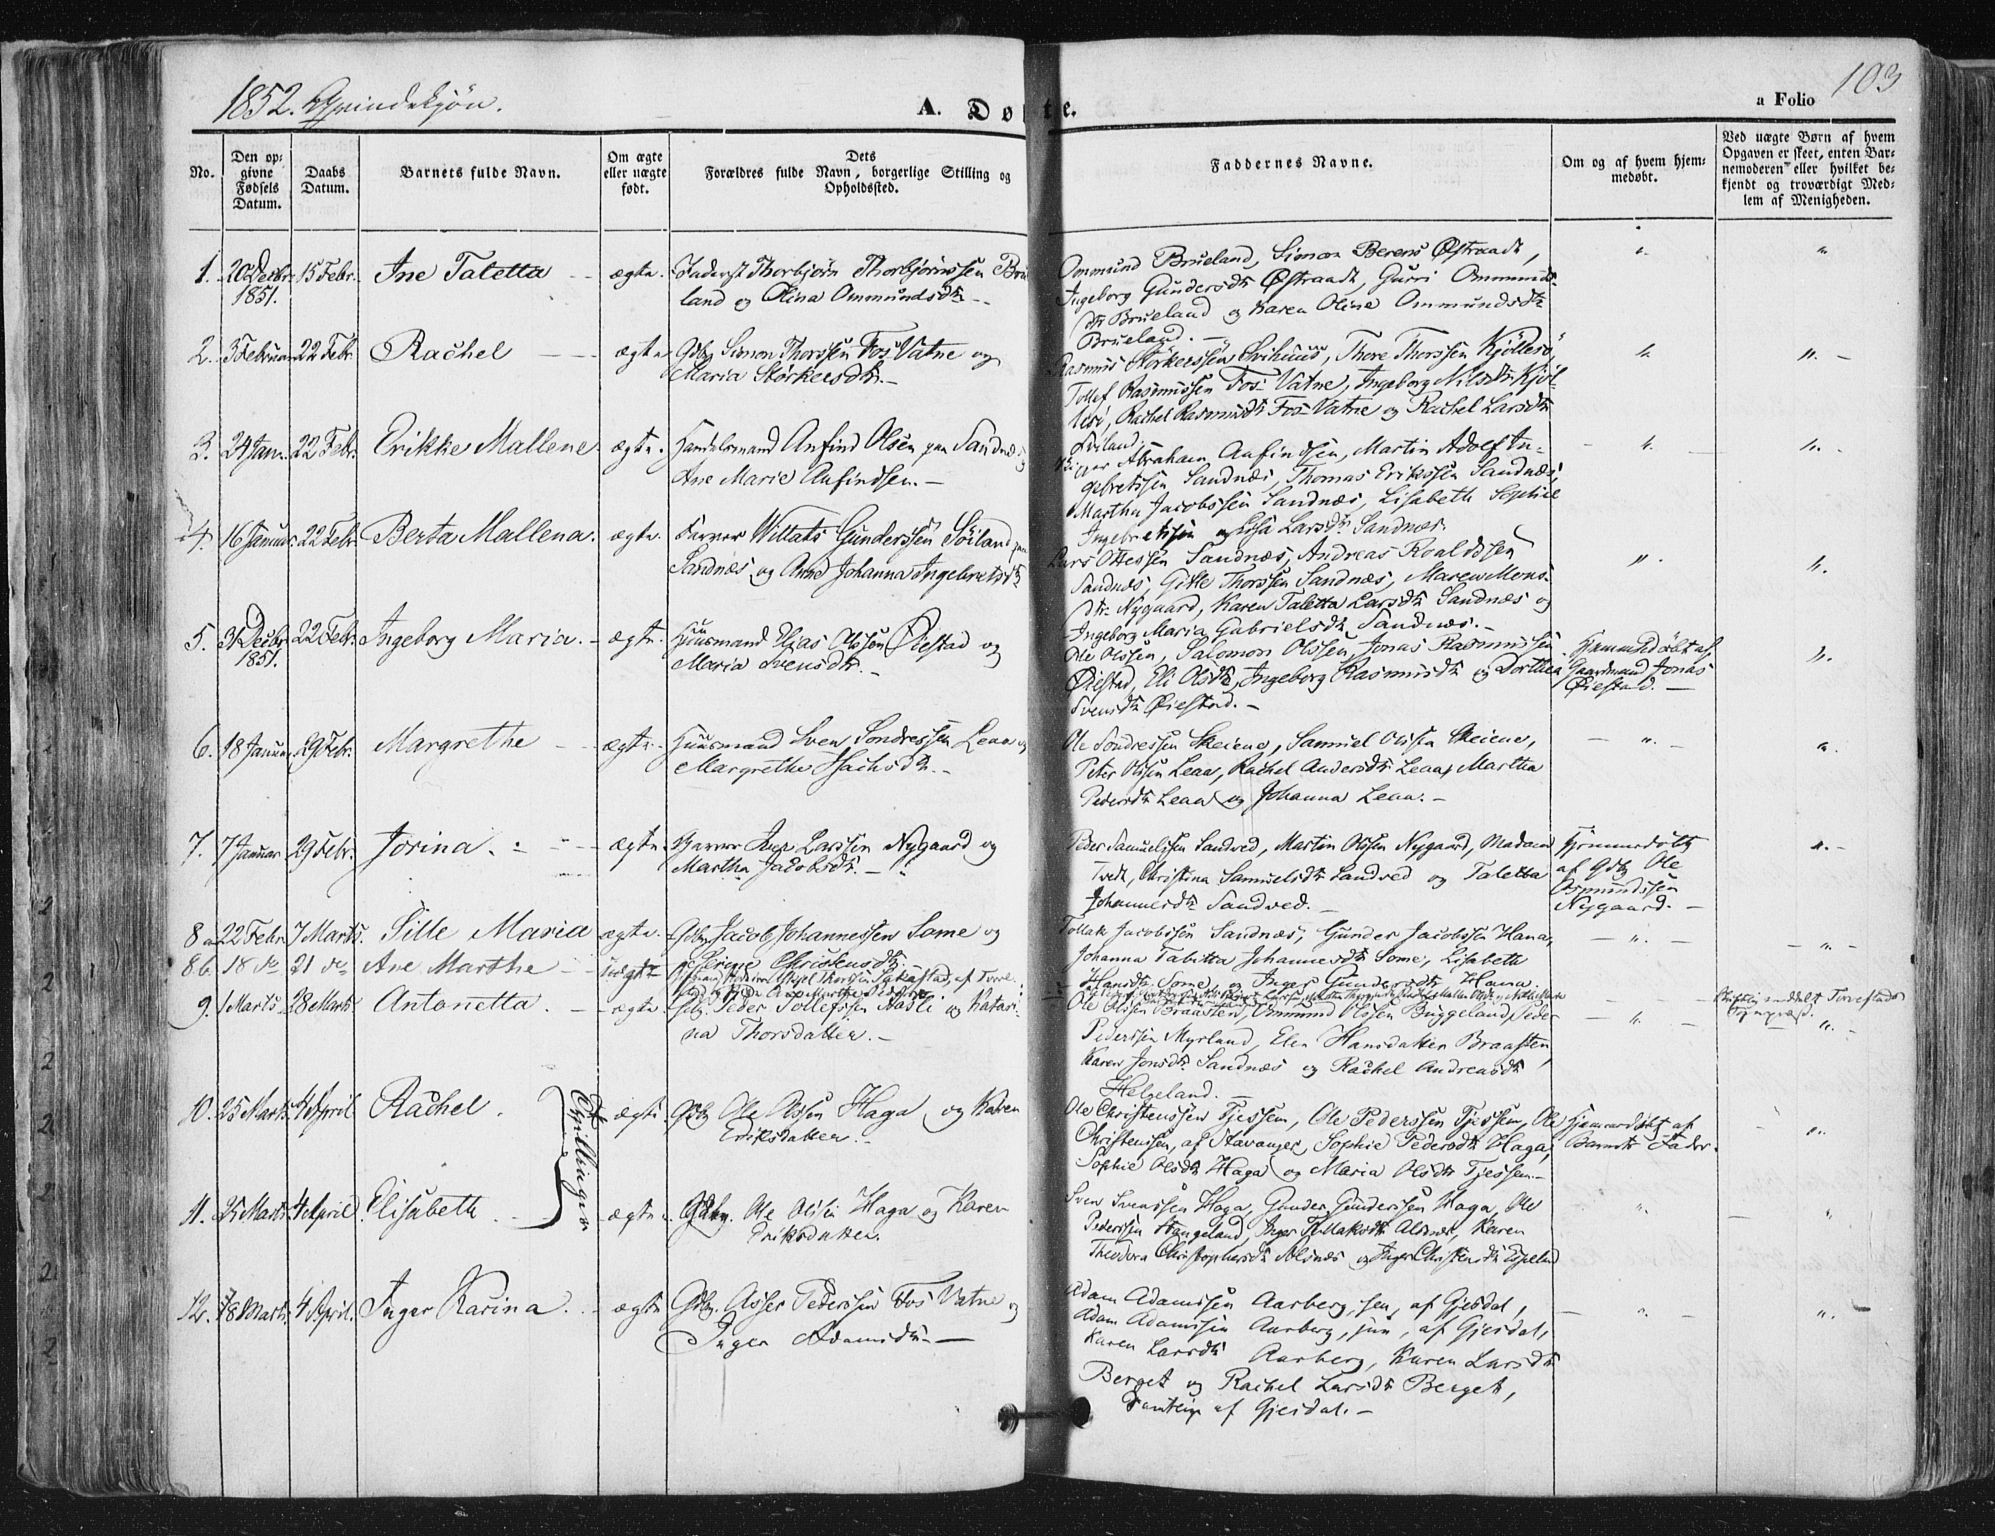 1852. Qvindekjøn.
A. Døbte.
a Folio 103
No.
Den opgivne Fødsels Datum.
Daabs Datum.
Barnets fulde Navn.
Om ægte eller uægte født.
Dets Forældres fulde Navn, borgerlige Stilling og Opholdssted.
Faddernes Navne.
Om og af hvem hjemmedøbt.
Ved uægte Børn af hvem Opgaven er skeet, enten Barnemoderen eller hvilket bekjendt og troværdigt Medlem af Menigheden.
1. 20 Decbr. 1851. 15 Febr. Ane Taletta ægte. Inderst Thorbjørn Thorbjørnssen Brueland og Olina Ommundsdtr.
Ommund Brueland, Simon Berens Østraadt,
Ingeborg Gundersdtr Østraadt, Gurri Ommundsdtr Brueland og Karen Olina Ommundsdtr
Brueland.
2. 3 Februar 22 Febr. Rachel ægte Gdbg Simon Thorssen Fos Vatne og
Maria Størkersdtr.
Rasmus Størkerssen Svihuus, Thore Thorssen Kjøllesø,
Tollef Rasmussen Fos Vatne, Ingeborg Nilsdtr Kjøllesø, Rachel Rasmusdtr Fos Vatne og Rachel Larsdtr
3. 24 Jan. 22 Febr. Erikke Mallene ægte. Handelsmand Anfind Olsen paa Sandnæs og
Ane Marie Anfindsen.
Abraham Anfindsen, Martin Adolf Ingebretsen Sandnæs, Thomas Erikssen Sandnæs,
Martha Jacobssen Sandnæs, Lisabeth Sophie
Ingebretsen og Lisa Larsdtr Sandnæs.
4. 16 Januar. 22 Febr. Berta Mallena. ægte. Farver Wittats Gunderssen Söiland paa
Sandnæs og Anne Johanna Ingebretsdtr
Lars Ottessen Sandnæs, Andreas Roaldssen
Sandnæs, Gitle Thorssen Sandnæs, Maren Monsdtr Nygaard, Karen Taletta Larsdtr Sandnæs og
Ingeborg Maria Gabrielsdtr Sandnæs.
5. 31 Decbr. 1851. 22 Febr. Ingeborg Maria. ægte. Huusmand Elias Olssen Øiestad og
Maria Svensdtr.
Ole Olssen, Salomon Olssen, Jonas Rasmussen
Øiestad, Eli Olsdtr, Ingeborg Rasmusdtr og Dorthea
Svensdtr Øiestad.
Hjemmedöbt af
Gaardmand Jonas
Øiestad.
6. 18 Januar 29 Febr. Margrethe ægte. Huusmand Sven Sondressen Leaa og
Margrethe Isachsdtr.
Ole Sondressen Skeiene, Samuel Olssen Skeiene,
Peter Olssen Leaa, Rachel Andersdtr Leaa, Martha
Pedersdtr Leaa og Johanna Leaa.
7. 7 Januar. 29 Febr. Jorina. ægte. Garver Larssen Nygaard og
Martha Jacobsdtr.
Peder Samuelssen Sandved, Martin Olssen Nygaard, Madame
Tvedt, Christina Samuelsdtr Sandved og Taletta
Johannesdtr Sandved.
Hjemmedöbt
af Gdbg Ole
Osmundssen
Nygaard.
8a 22 Febr. 7 Marts. Sille Maria ægte. Gdbg. Jacob Johannessen Some og
Sirene Christensdtr.
Tollak Jacobssen Sandnæs, Gunder Jacobssen Hana,
Johanna Tabitta Johannesdtr Some, Lisabeth
Hansdtr Some og Inger Gundersdtr Hana.
8b. 18 do 21 do Ane Marthe uægte
9. 1 Marts 28 Marts. Antonetta. ægte Gdbg. Peder Tollefssen Aasli og Katarina Thorsdatter.
Ole Olssen Braasten, Ommund Olssen Buggeland, Peder
Pederssen Myrland, Elen Hansdatter Braasten,
Karen Jonsdtr Sandnæs og Rachel Andreasdtr
Helgeland.
10. 25 Marts 4 April Rachel. ægte Gdbg Ole Olssen Haga og Karen
Eriksdatter.
Tvillinger
Ole Christenssen Tjessem, Ole Pederssen Tjessem, Ole
Christenssen, af Stavanger, Sophie Pedersdtr Haga,
Sophie Olsdtr Haga og Maria Olsdtr Tjessem.
Hjemmedøbt af
Barnets Fader.
11. 25 Marts 4 April. Elisabeth. ægte Gdbg. Ole Olssen Haga og Karen
Eriksdatter.
Sven Svenssen Haga, Gunder Gunderssen Haga, Ole
Pederssen Stangeland, Inger Tollaksdtr Alsnæs, Karen
Theodora Christophersdtr Alsnæs og Inger Christensdtr Espeland
12. 18 Marts. 4 April. Inger Karina. ægte Gdbg. Asser Pederssen Fos Vatne og
Inger Adamsdtr.
Adam Adamssen Aarberg, sen, af Gjesdal,
Adam Adamssen Aarberg, jun, af Gjesdal,
Karen Larsdtr Aarberg, Karen Larsdtr
Berget og Rachel Larsdtr Berget,
samtlige af Gjesdal.